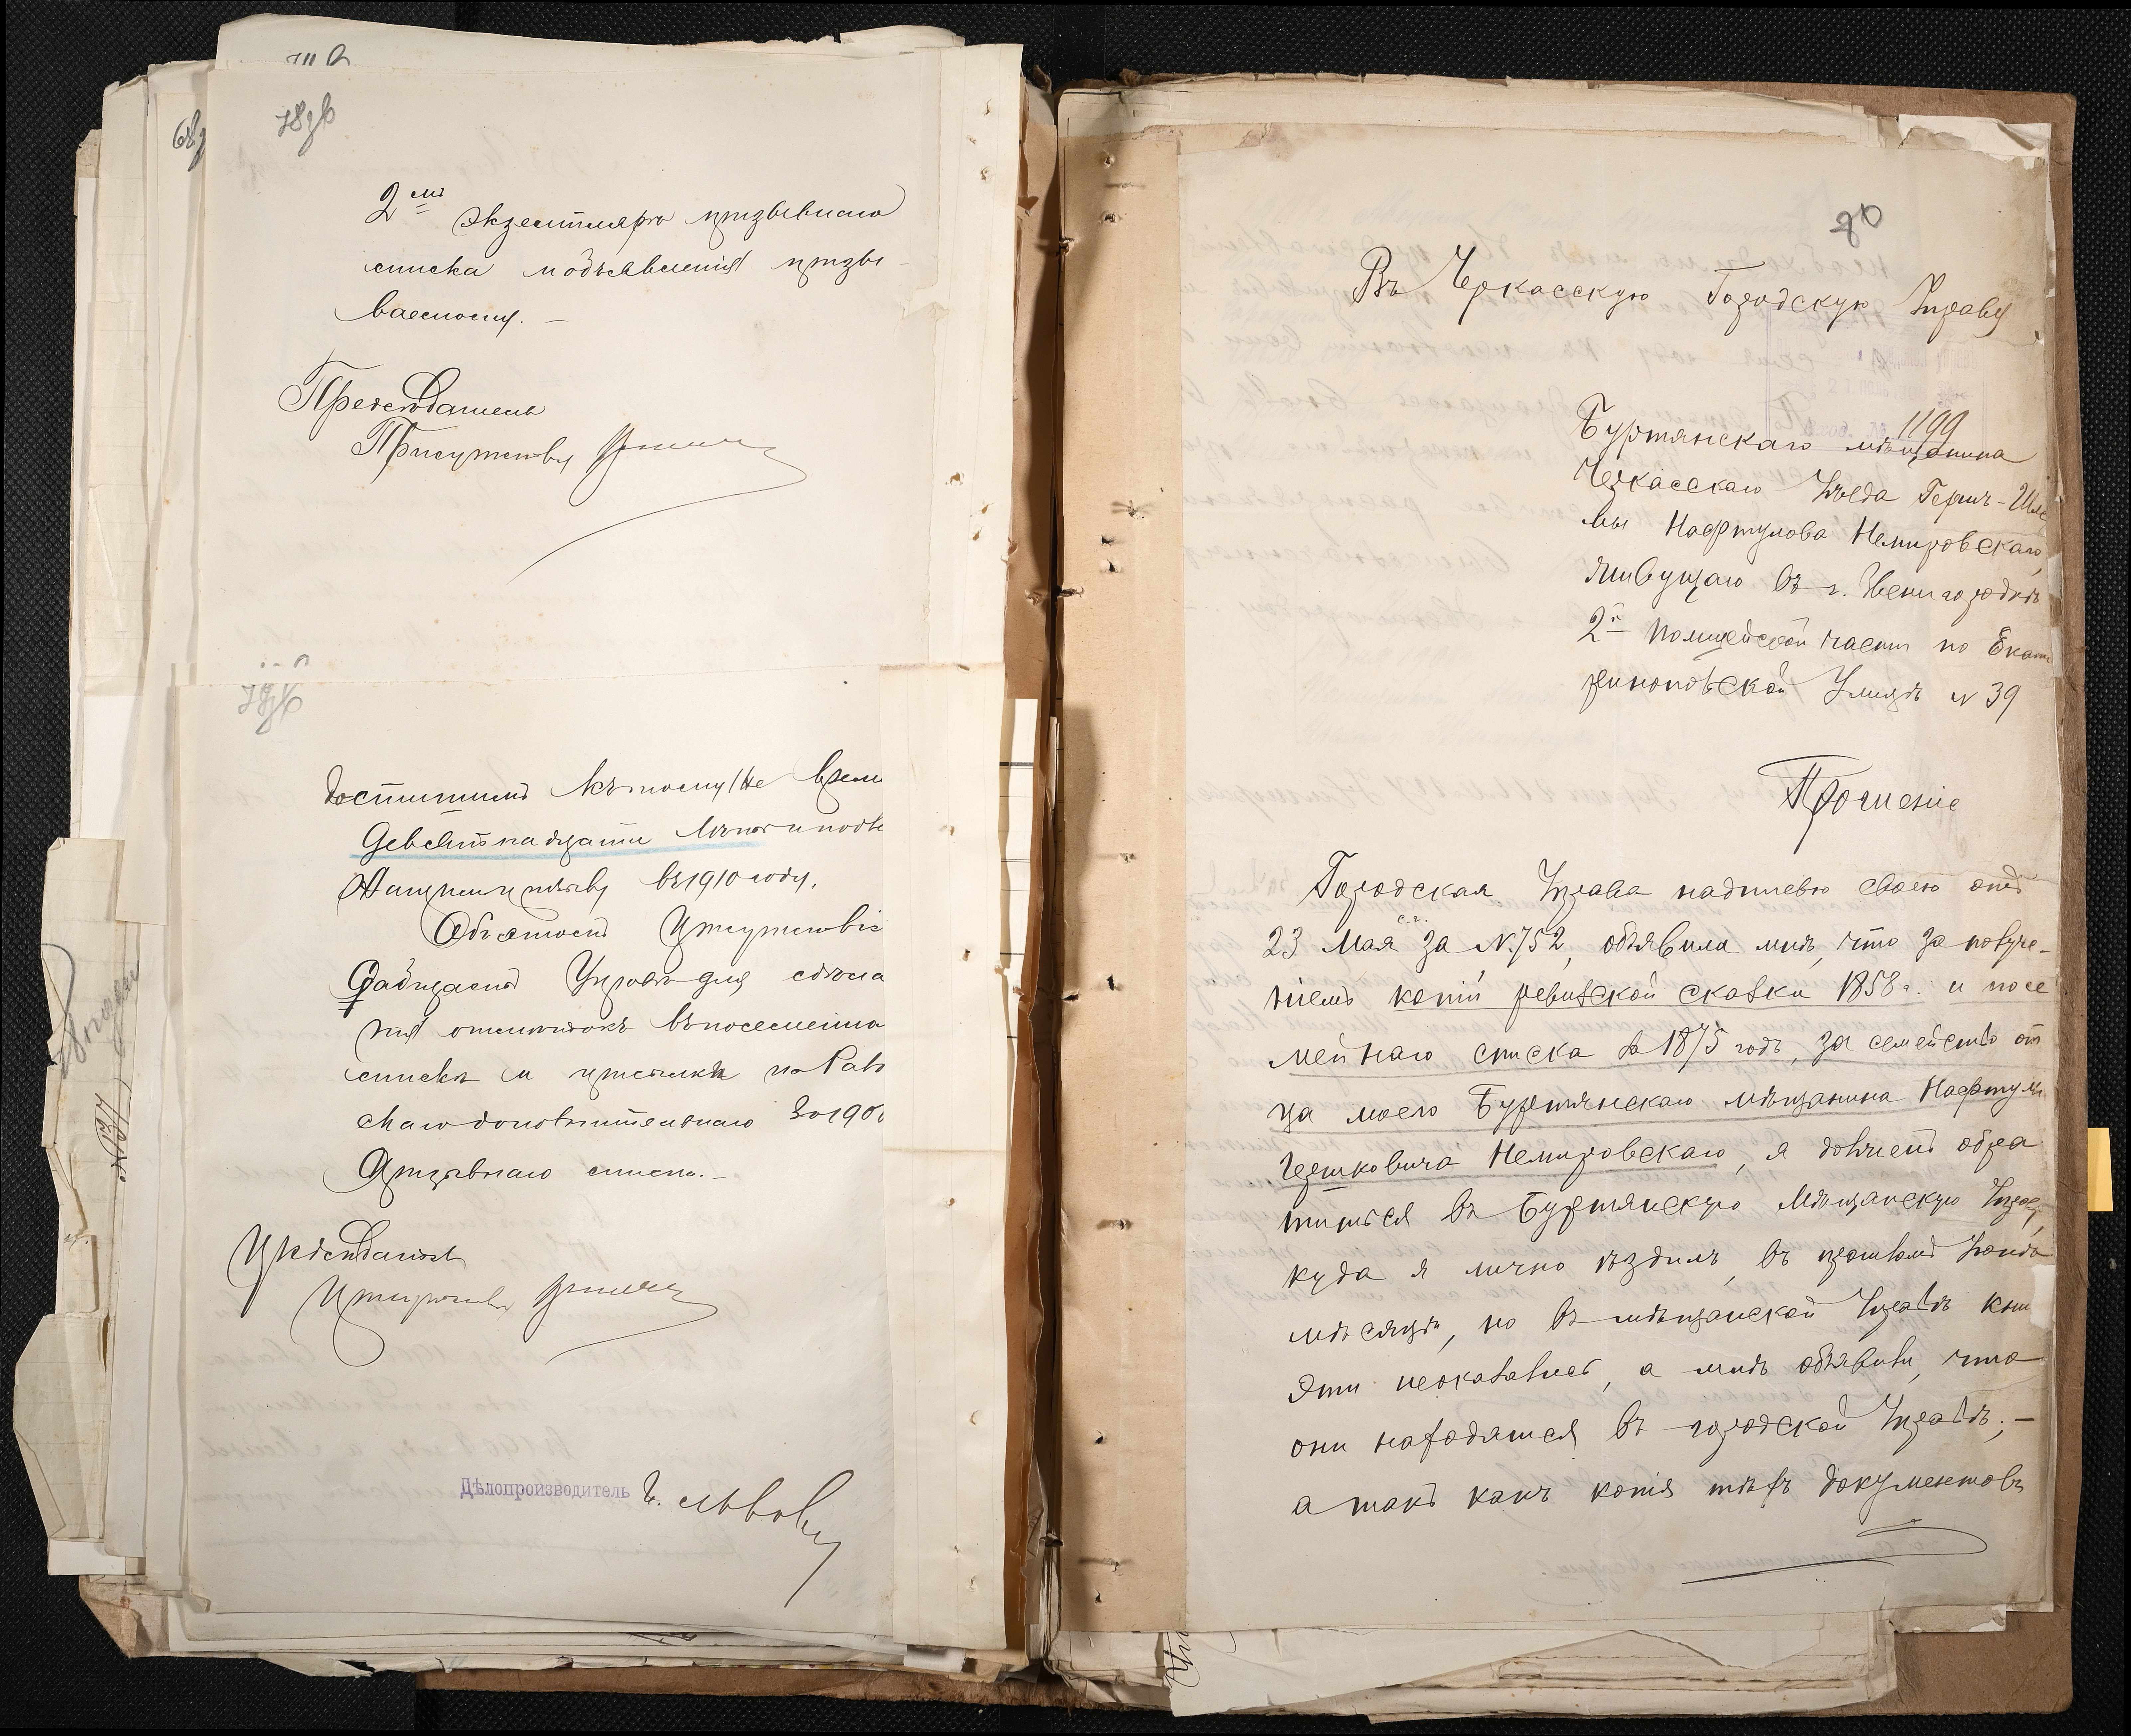 78об
2мъ экземпляръ призывного
списка и объявленія призы-
ваемому.-
Предсѣдатель
Присутствія
79об
достигшимъ къ тому же
девятнадцати лѣтъ и подле
жащимъ призыву въ 1910 году.
Объ этомъ Присутствіе
сообщаетъ Управѣ для сдѣла
нія отмѣтокъ въ посемейно
списка и
дополнительнаго 
призывного списка.-
Предсѣдатель
Присутствія
Дѣлопроизводитель
80
Въ Черкасскую Городскую Управу
1199
Буртянскаго мѣщанина
Черкасскаго Уѣзда Герш-Шле
мы Нафтулова Немировскаго,
живущаго въ г. Звенигородкѣ
2й полицейской части по Екате
ринопольской Улицѣ № 39
Прошеніе
Городская Управа надписью своею отъ
с.г.
23 Мая за № 752, объявила мнѣ, что за получе-
ніемъ копіи ревизской сказки 1858 г. и посе
мейнаго списка за 1875 годъ, за семейство от
ца моего Буртянскаго мѣщанина Нафтулы
Гершковича Немировскаго, я долженъ обра
титься въ Буртянскую Мѣщанскую Управу,
куда я лично ѣздилъ, въ прошломъ Іюнѣ
мѣсяцѣ, но въ мѣщанской Управѣ кни
эти неоказались, а мнѣ объявили, что
они находятся въ городской Управѣ;-
а такъ какъ копія тѣхъ документовъ